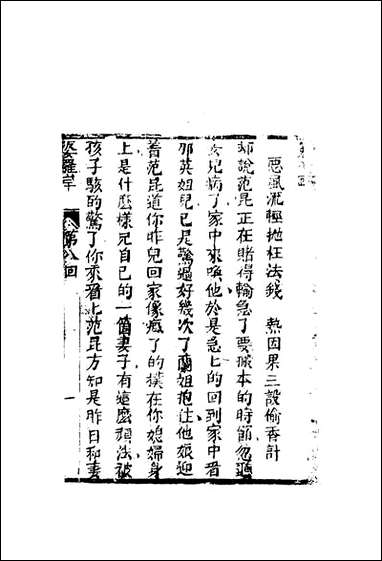 惡風流輕拋枉法錢　熱因果三設偷香計
却說范昆正在賭得輸急了要城本的時節忽聽
女兒病了家中來喚他於是急上的回到家中看
那英姐兒已是驚過好幾次了蘭姐抱住他娘迎
着范昆道你昨兒回家像瘋了的樸在你娘婦身
上是什麽樣兒自已的一箇妻子有這麽頑法被
孩子駭的驚了你來看上范昆方知是昨日和妻
婆羅岸
第八囘
一